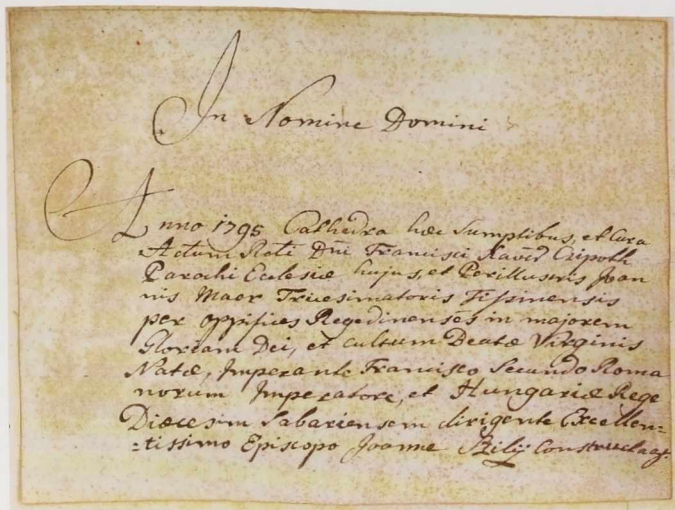 In Nomine Domini
Anno 1795 Cathedra hæc Sumptibus, et Cura
Actum Rdi Dni Francisci Xaver
Parochi Ecclesiæ hujus, et Perillustris Joan
nis Maer Tricesimatoris
per oppifices Regedinenses in majorem
Gloriam Dei, et cultum Beatæ Virginis
Natæ, Imperante Francisco Secundo Roma
norum Imperatore, et Hungariæ Rege
Diæcesim Sabariensem dirigente Excellen=
=tissimo Episcopo Joanne Szily Constructa